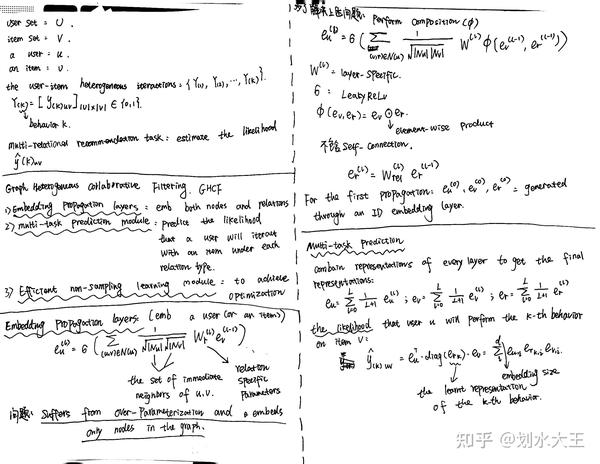 user set = U.
item set = V.
a user = u.
an item = v.
the user-item heterogeneous interactions = {Y(1), Y(2), ..., Y(K)}.
Y(k) = [y(k)uv]|U|×|V| ∈ {0,1}.
behavior k.
multi-relational recommendation task: estimate the likelihood
ŷ(k)uv
Graph Heterogeneous Collaborative Filtering. GHCF
1) Embedding propagation layers: emb both nodes and relations
2) multi-task prediction module: predict the likelihood
that a user will interact
with an item under each
relation type.
3) Efficient non-sampling learning module: to achieve
optimization
Embedding propagation layers: (emb a user (or an item))
eu(l) = б ( Σ(v,r)∈N(u) 1/√|Nu||Nv| Wr(l) ev(l-1) )
the set of immediate
neighbors of u.v.
relation
specific
parameters
问题: suffers from over-parameterization and embeds
only nodes in the graph.
为了解决上述问题: perform composition (ϕ)
eu(l) = б ( Σ(v,r)∈N(u) 1/√|Nu||Nv| W(l) ϕ(ev(l-1), er(l-1)) )
W(l) = layer-specific.
б : LeakyReLU
ϕ(ev,er) = ev ⊙ er.
element-wise product
不含self-connection.
er(l) = Wrel(l) er(l-1)
For the first propagation: eu(0), ev(0), er(0) = generated
through an ID embedding layer.
Multi-task Prediction
combain representations of every layer to get the final
representations:
eu = Σ(l=0→L) 1/(L+1) eu(l) ; ev = Σ(l=0→L) 1/(L+1) ev(l) ; er = Σ(l=0→L) 1/(L+1) er(l)
the likelihood that user u will perform the k-th behavior
on item v:
ŷ(k)uv = eu^T · diag(erk) · ev = Σ(i→d) eu,i erk,i ev,i.
embedding size
the learnt representation
of the k-th behavior.
知乎 @划水大王